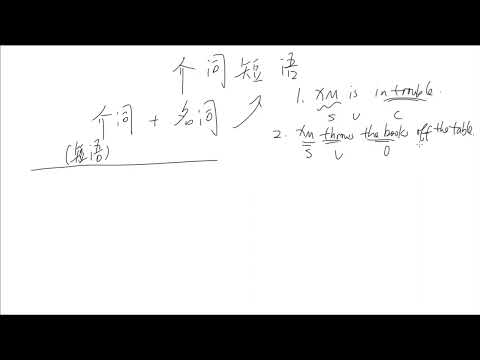 介词短语
介词 + 名词
(短语)
1. XM is in trouble.
S V C
2. XM throws the books off the table.
S V O